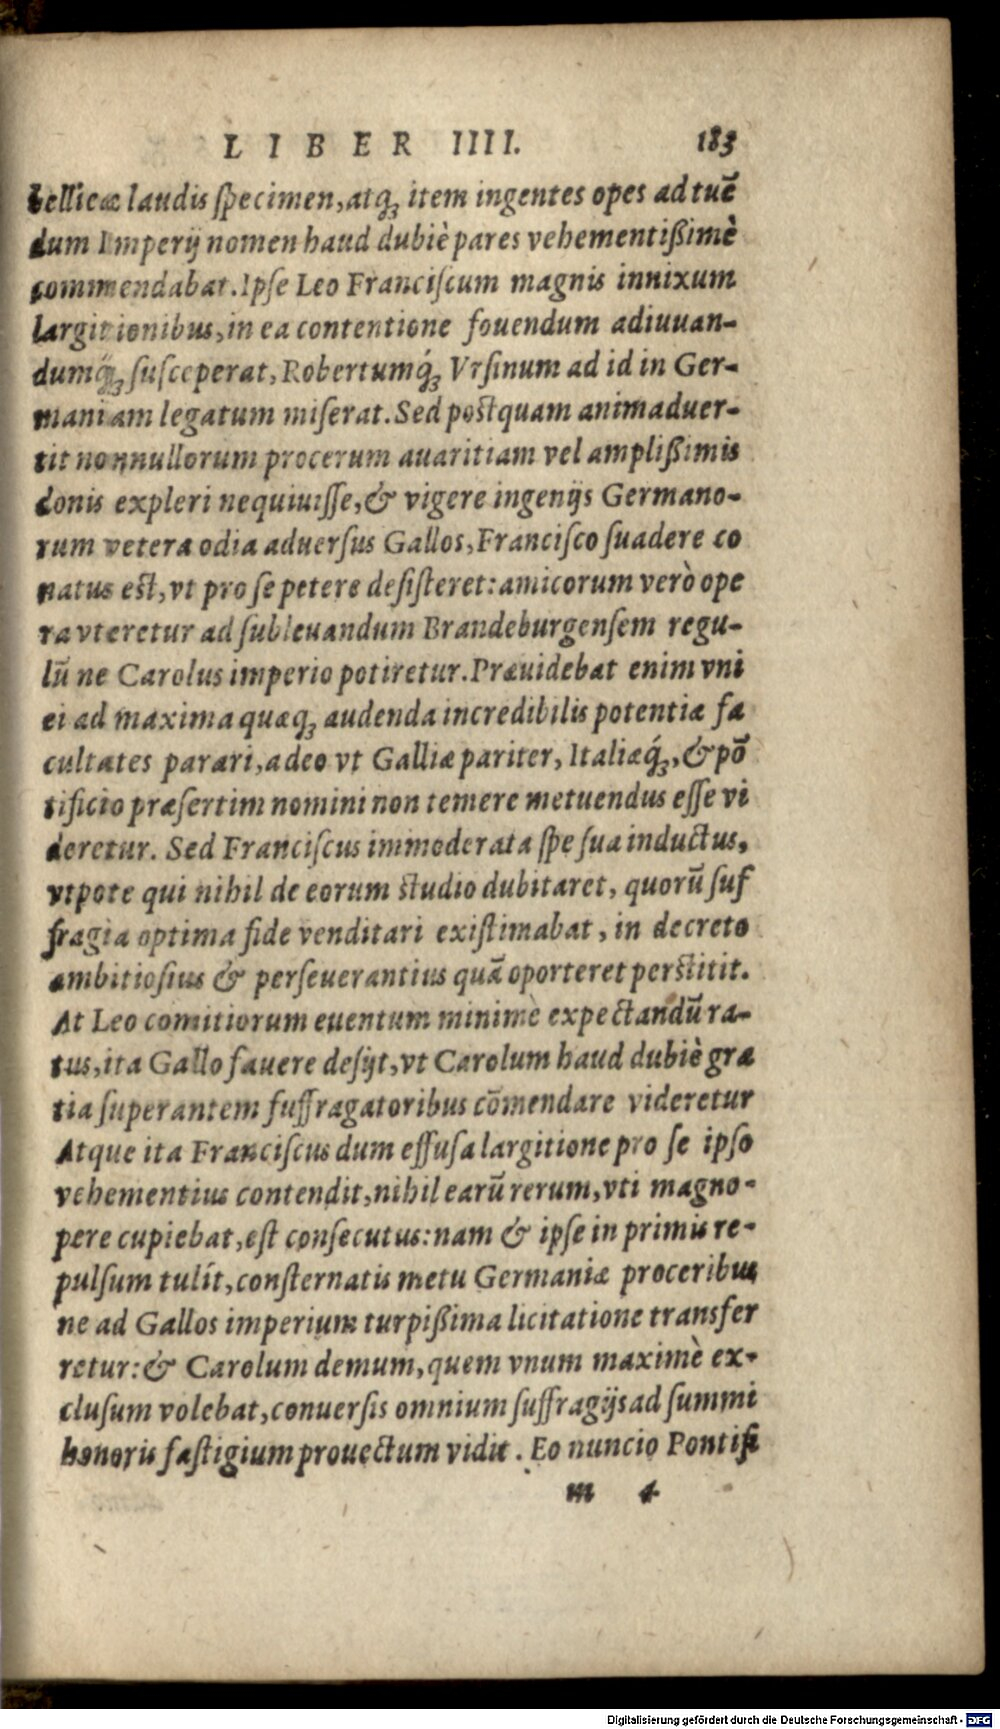 LIBER IIII. 183
bellicæ laudis ſpecimen, atq; item ingentes opes ad tuē
dum Imperij nomen haud dubiè pares vehementißimè
commendabat. Ipſe Leo Franciſcum magnis innixum
largitionibus, in ea contentione fouendum adiuuan-
dumq́; ſuſceperat, Robertumq́; Vrſinum ad id in Ger-
maniam legatum miſerat. Sed poſtquam animaduer-
tit nonnullorum procerum auaritiam vel amplißimis
donis expleri nequiuiſſe, & vigere ingenijs Germano-
rum vetera odia aduerſus Gallos, Franciſco ſuadere co
natus eſt, vt pro ſe petere deſiſteret: amicorum verò ope
ra vteretur ad ſubleuandum Brandeburgenſem regu-
lū ne Carolus imperio potiretur. Præuidebat enim vni
ei ad maxima quæq; audenda incredibilis potentiæ fa
cultates parari, adeo vt Galliæ pariter, Italiæq́;, & pō
tificio præſertim nomini non temere metuendus eſſe vi
deretur. Sed Franciſcus immoderata ſpe ſua inductus,
vtpote qui nihil de eorum ſtudio dubitaret, quorū ſuf
fragia optima fide venditari exiſtimabat, in decreto
ambitioſius & perſeuerantius quā oporteret perſtitit.
At Leo comitiorum euentum minimè expectandū ra-
tus, ita Gallo fauere deſijt, vt Carolum haud dubiè gra
tia ſuperantem ſuffragatoribus cōmendare videretur
Atque ita Franciſcus dum effuſa largitione pro ſe ipſo
vehementius contendit, nihil earū rerum, vti magno-
pere cupiebat, eſt conſecutus: nam & ipſe in primis re-
pulſum tulit, conſternatis metu Germaniæ proceribus
ne ad Gallos imperium turpißima licitatione transfer
retur: & Carolum demum, quem vnum maximè ex-
cluſum volebat, conuerſis omnium ſuffragijs ad ſummi
honoris faſtigium prouectum vidit. Eo nuncio Pontifi
m 4
Digitalisierung gefördert durch die Deutsche Forschungsgemeinschaft - DFG